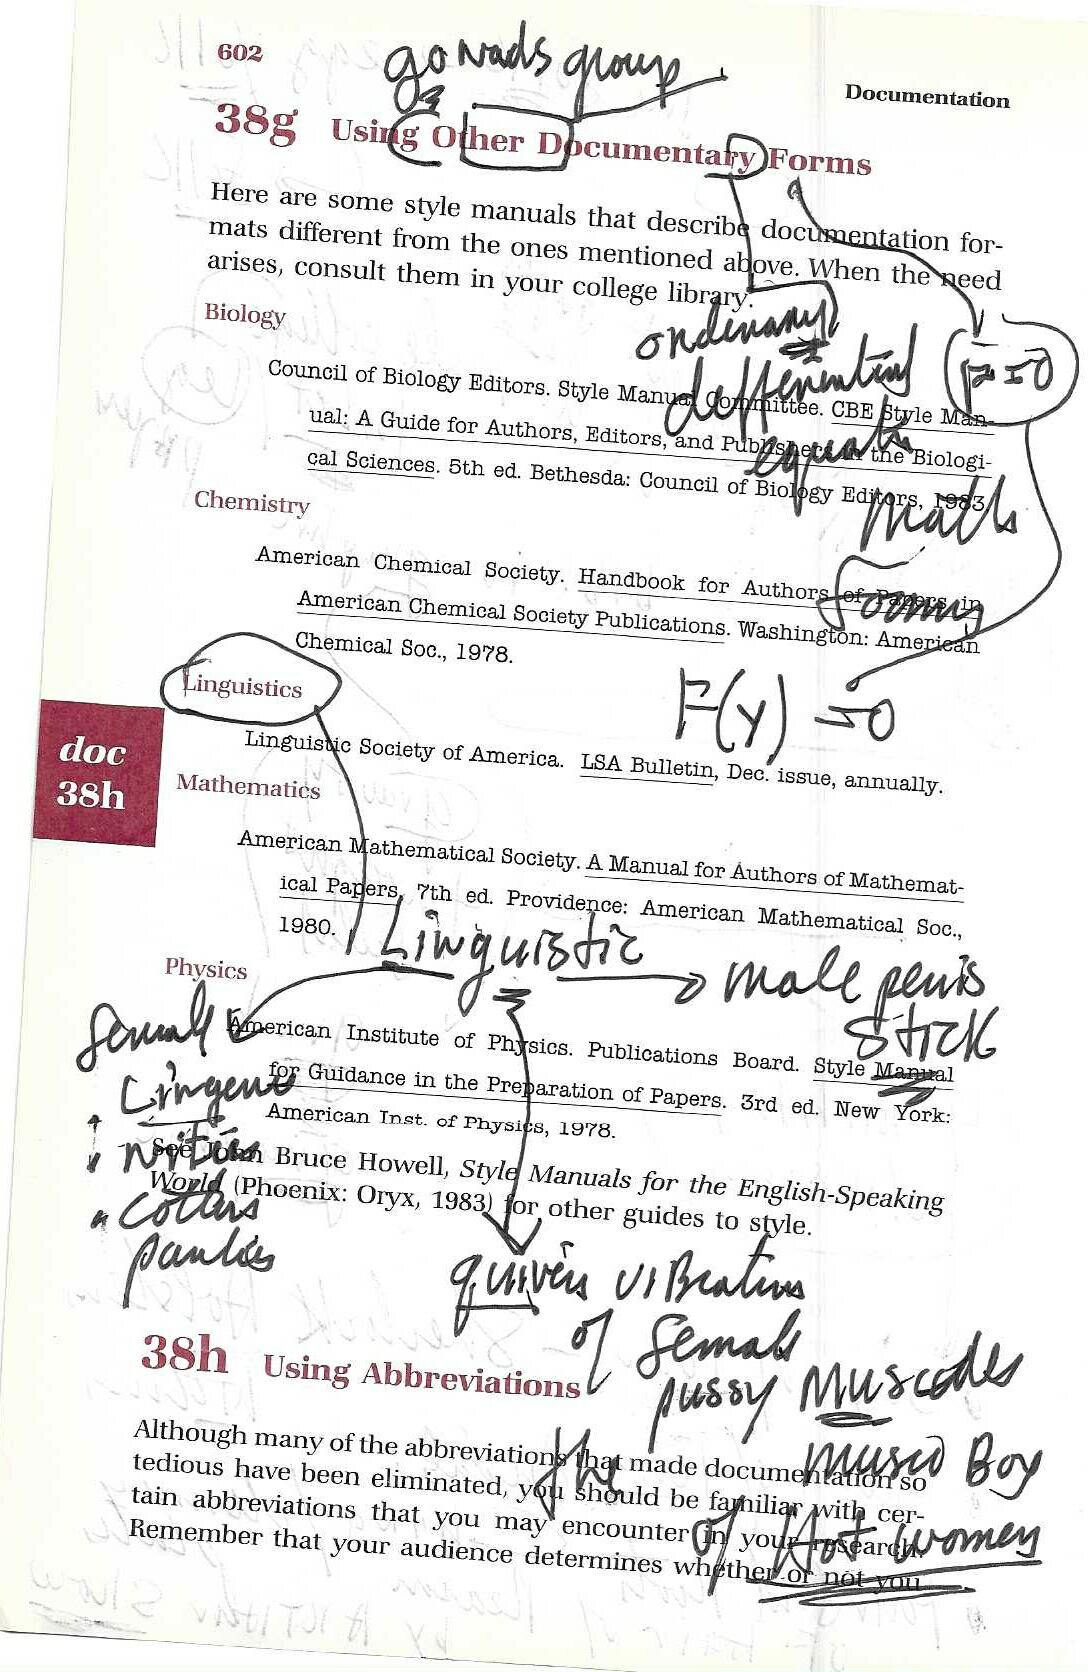 602
gonads group
Documentation
38g Using Other Documentary Forms
Here are some style manuals that describe documentation for-
mats different from the ones mentioned above. When the need
arises, consult them in your college library.
Biology
ordinary
differential
F=0
Council of Biology Editors. Style Manual Committee. CBE Style Man-
ual: A Guide for Authors, Editors, and Publishers in the Biologi-
cal Sciences. 5th ed. Bethesda: Council of Biology Editors, 1983.
Math
Chemistry
American Chemical Society. Handbook for Authors of Papers in
American Chemical Society Publications. Washington: American
Chemical Soc., 1978.
Forms
F(y) = 0
Linguistics
Linguistic Society of America. LSA Bulletin, Dec. issue, annually.
doc
38h
Mathematics
American Mathematical Society. A Manual for Authors of Mathemat-
ical Papers, 7th ed. Providence: American Mathematical Soc.,
1980.
Linguistic
male penis
STICK
Physics
American Institute of Physics. Publications Board. Style Manual
for Guidance in the Preparation of Papers. 3rd ed. New York:
American Inst. of Physics, 1978.
See John Bruce Howell, Style Manuals for the English-Speaking
World (Phoenix: Oryx, 1983) for other guides to style.
female
panties
vibrations
of female
pussy Muscodes
38h Using Abbreviations
Although many of the abbreviations that made documentation so
tedious have been eliminated, you should be familiar with cer-
tain abbreviations that you may encounter in your research.
Remember that your audience determines whether or not you
the
Box
of Hot women